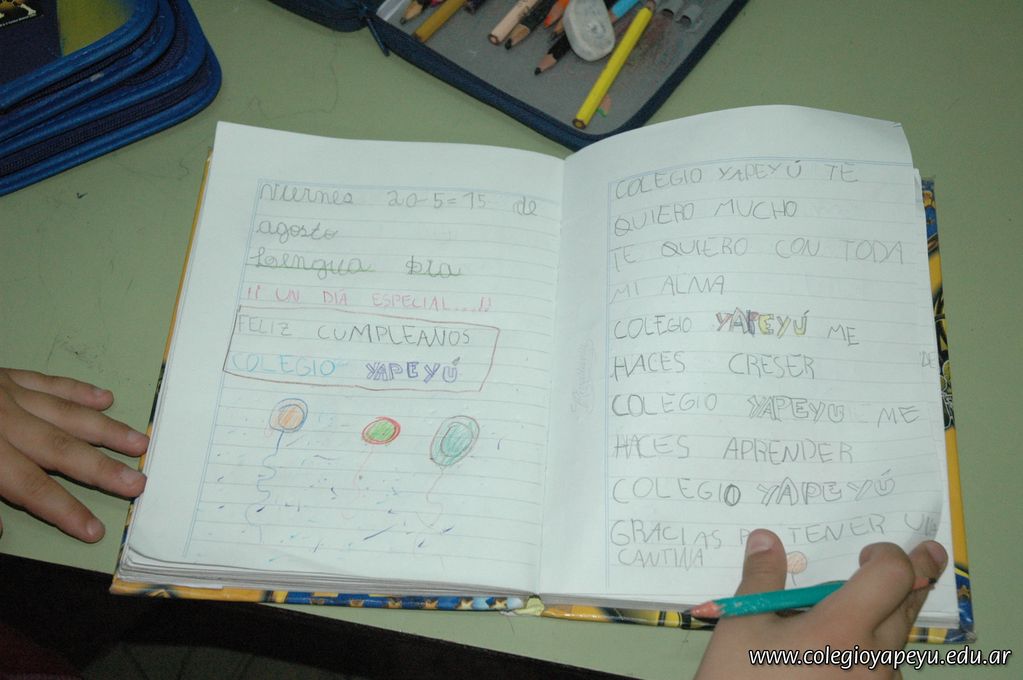 Viernes 20-5=15 de
agosto
Lengua Día
¡¡ UN DÍA ESPECIAL...!!
FELIZ CUMPLEANOS
COLEGIO YAPEYÚ
COLEGIO YAPEYÚ TE
QUIERO MUCHO
TE QUIERO CON TODA
MI ALMA
COLEGIO YAPEYÚ ME
HACES CRESER DE
COLEGIO YAPEYU ME
HACES APRENDER
COLEGIO YAPEYÚ
GRACIAS TENER
CANTINA
www.colegioyapeyu.edu.ar